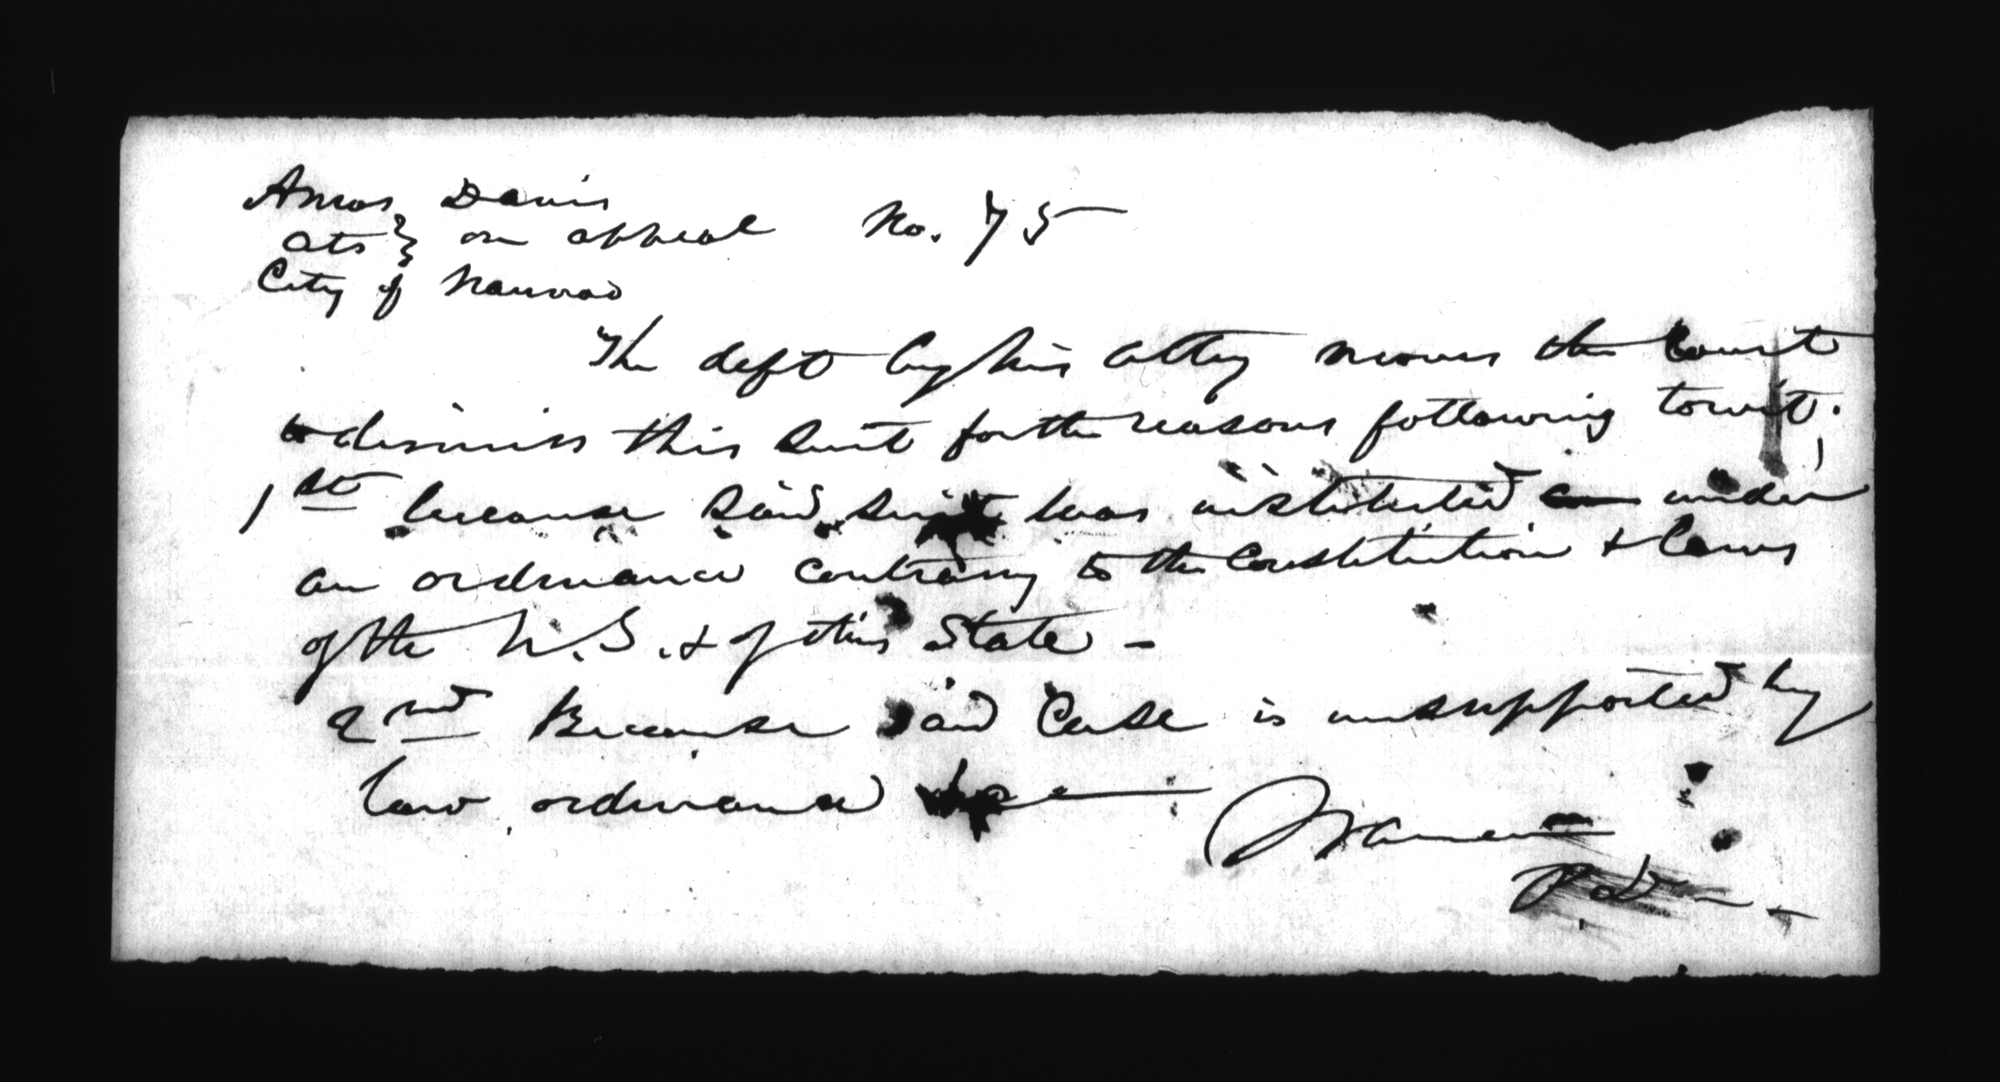 Amos Davis
ats } on appeal No. 75
City of Nauvoo
The deft by his atty moves the Court
to dismiss this suit for the reasons following towit;
1st because said suit was instituted under
an ordinance contrary to the Constitution & laws
of the U.S. & of this State -
2nd Because said Case is unsupported by
law, ordinance &c
Warren